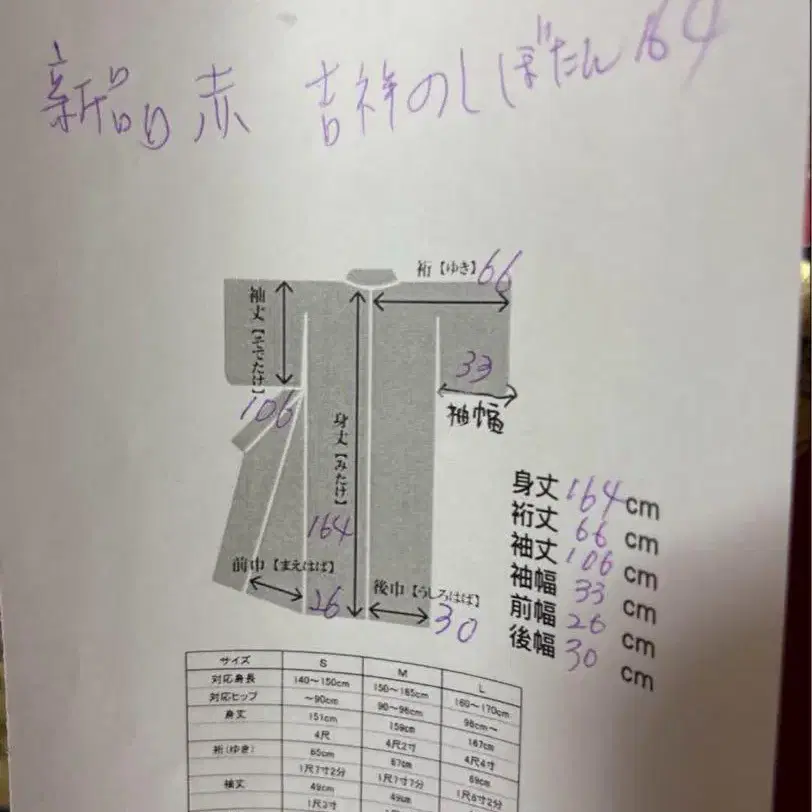 新品 赤 吉祥のしぼたん 164
裄【ゆき】66
袖丈【そでたけ】
106
33
袖幅
身丈【みたけ】
164
前巾【まえはば】
26
後巾【うしろはば】
30
身丈 164 cm
裄丈 66 cm
袖丈 106 cm
袖幅 33 cm
前幅 26 cm
後幅 30 cm
サイズ S M L
対応身長 140〜150cm 150〜165cm 160〜170cm
対応ヒップ 〜90cm 90〜98cm 98cm〜
身丈 151cm 159cm 167cm
4尺 4尺2寸 4尺4寸
裄(ゆき) 65cm 67cm 69cm
1尺7寸2分 1尺7寸7分 1尺8寸2分
袖丈 49cm 49cm
1尺3寸